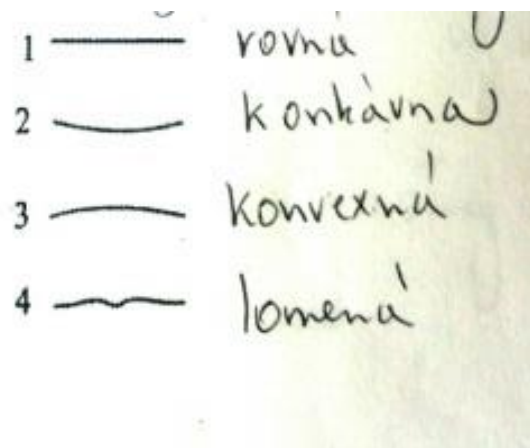 1 rovná
2 konkávna
3 konvexná
4 lomená